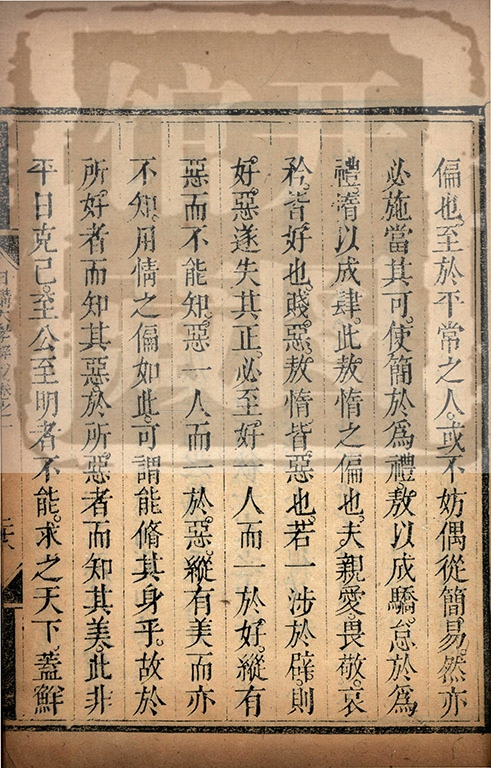 偏也。至於平常之人。或不妨偶從簡易。然亦
必施當其可。使簡於爲禮。敖以成驕。怠於爲
禮。惰以成肆。此敖惰之偏也。夫親愛。畏敬。哀
矜。皆好也。賤惡。敖惰。皆惡也。若一涉於辟。則
好。惡遂失其正。必至好一人而一於好。縱有
惡而不能知。惡一人而一於惡。縱有美而亦
不知。用情之偏如此。可謂能脩其身乎。故於
所好者而知其惡。於所惡者而知其美。此非
平日克己。至公至明者不能。求之天下。蓋鮮